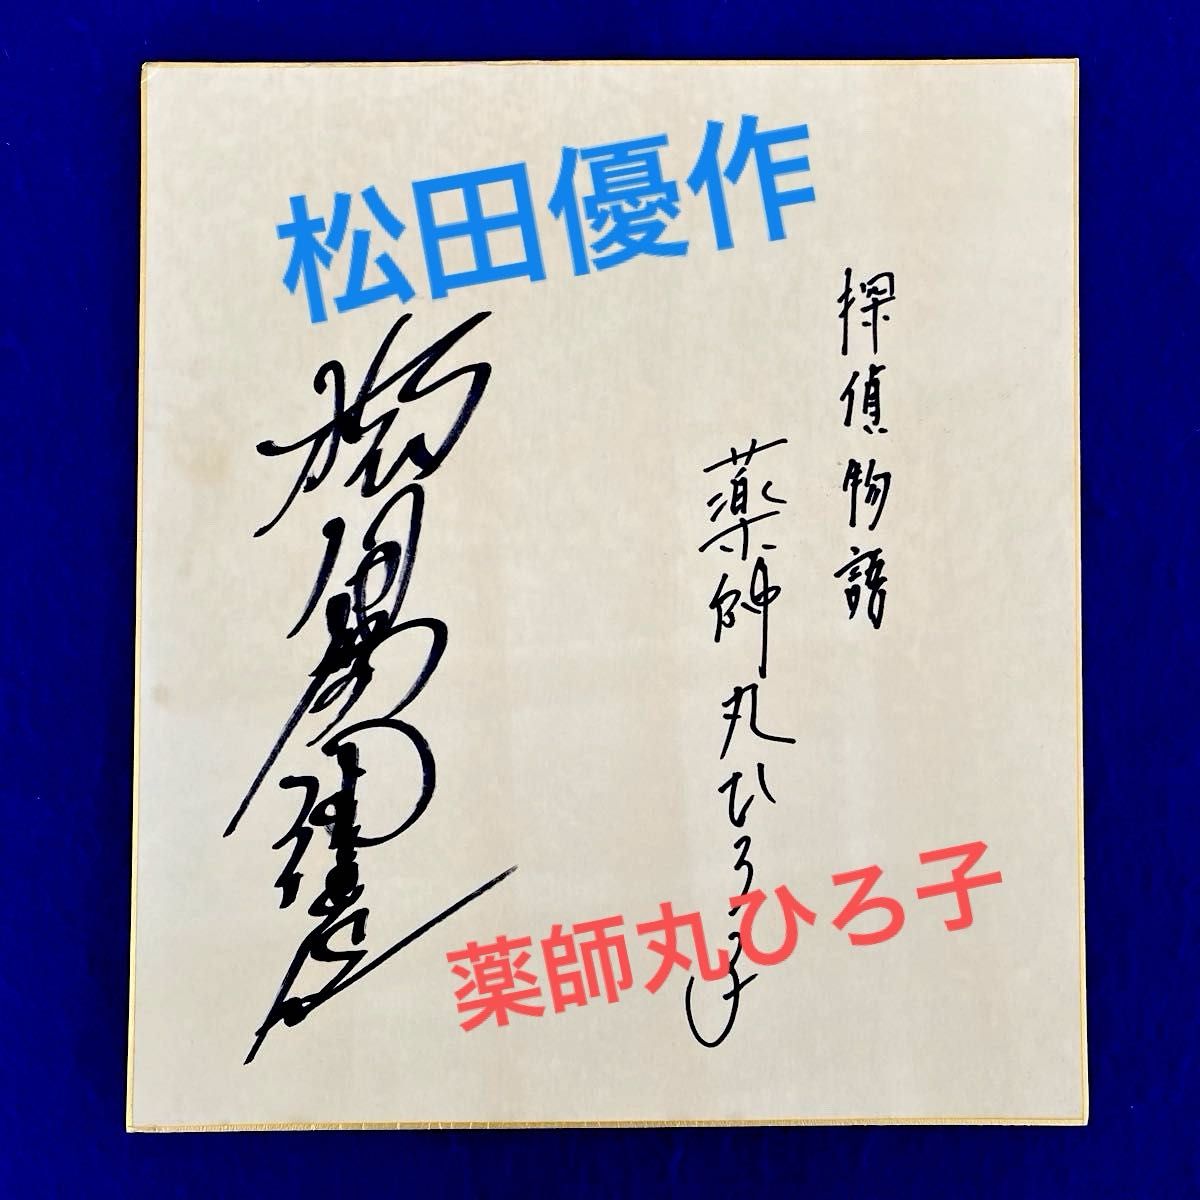 松田優作
探偵物語
薬師丸ひろ子
薬師丸ひろ子